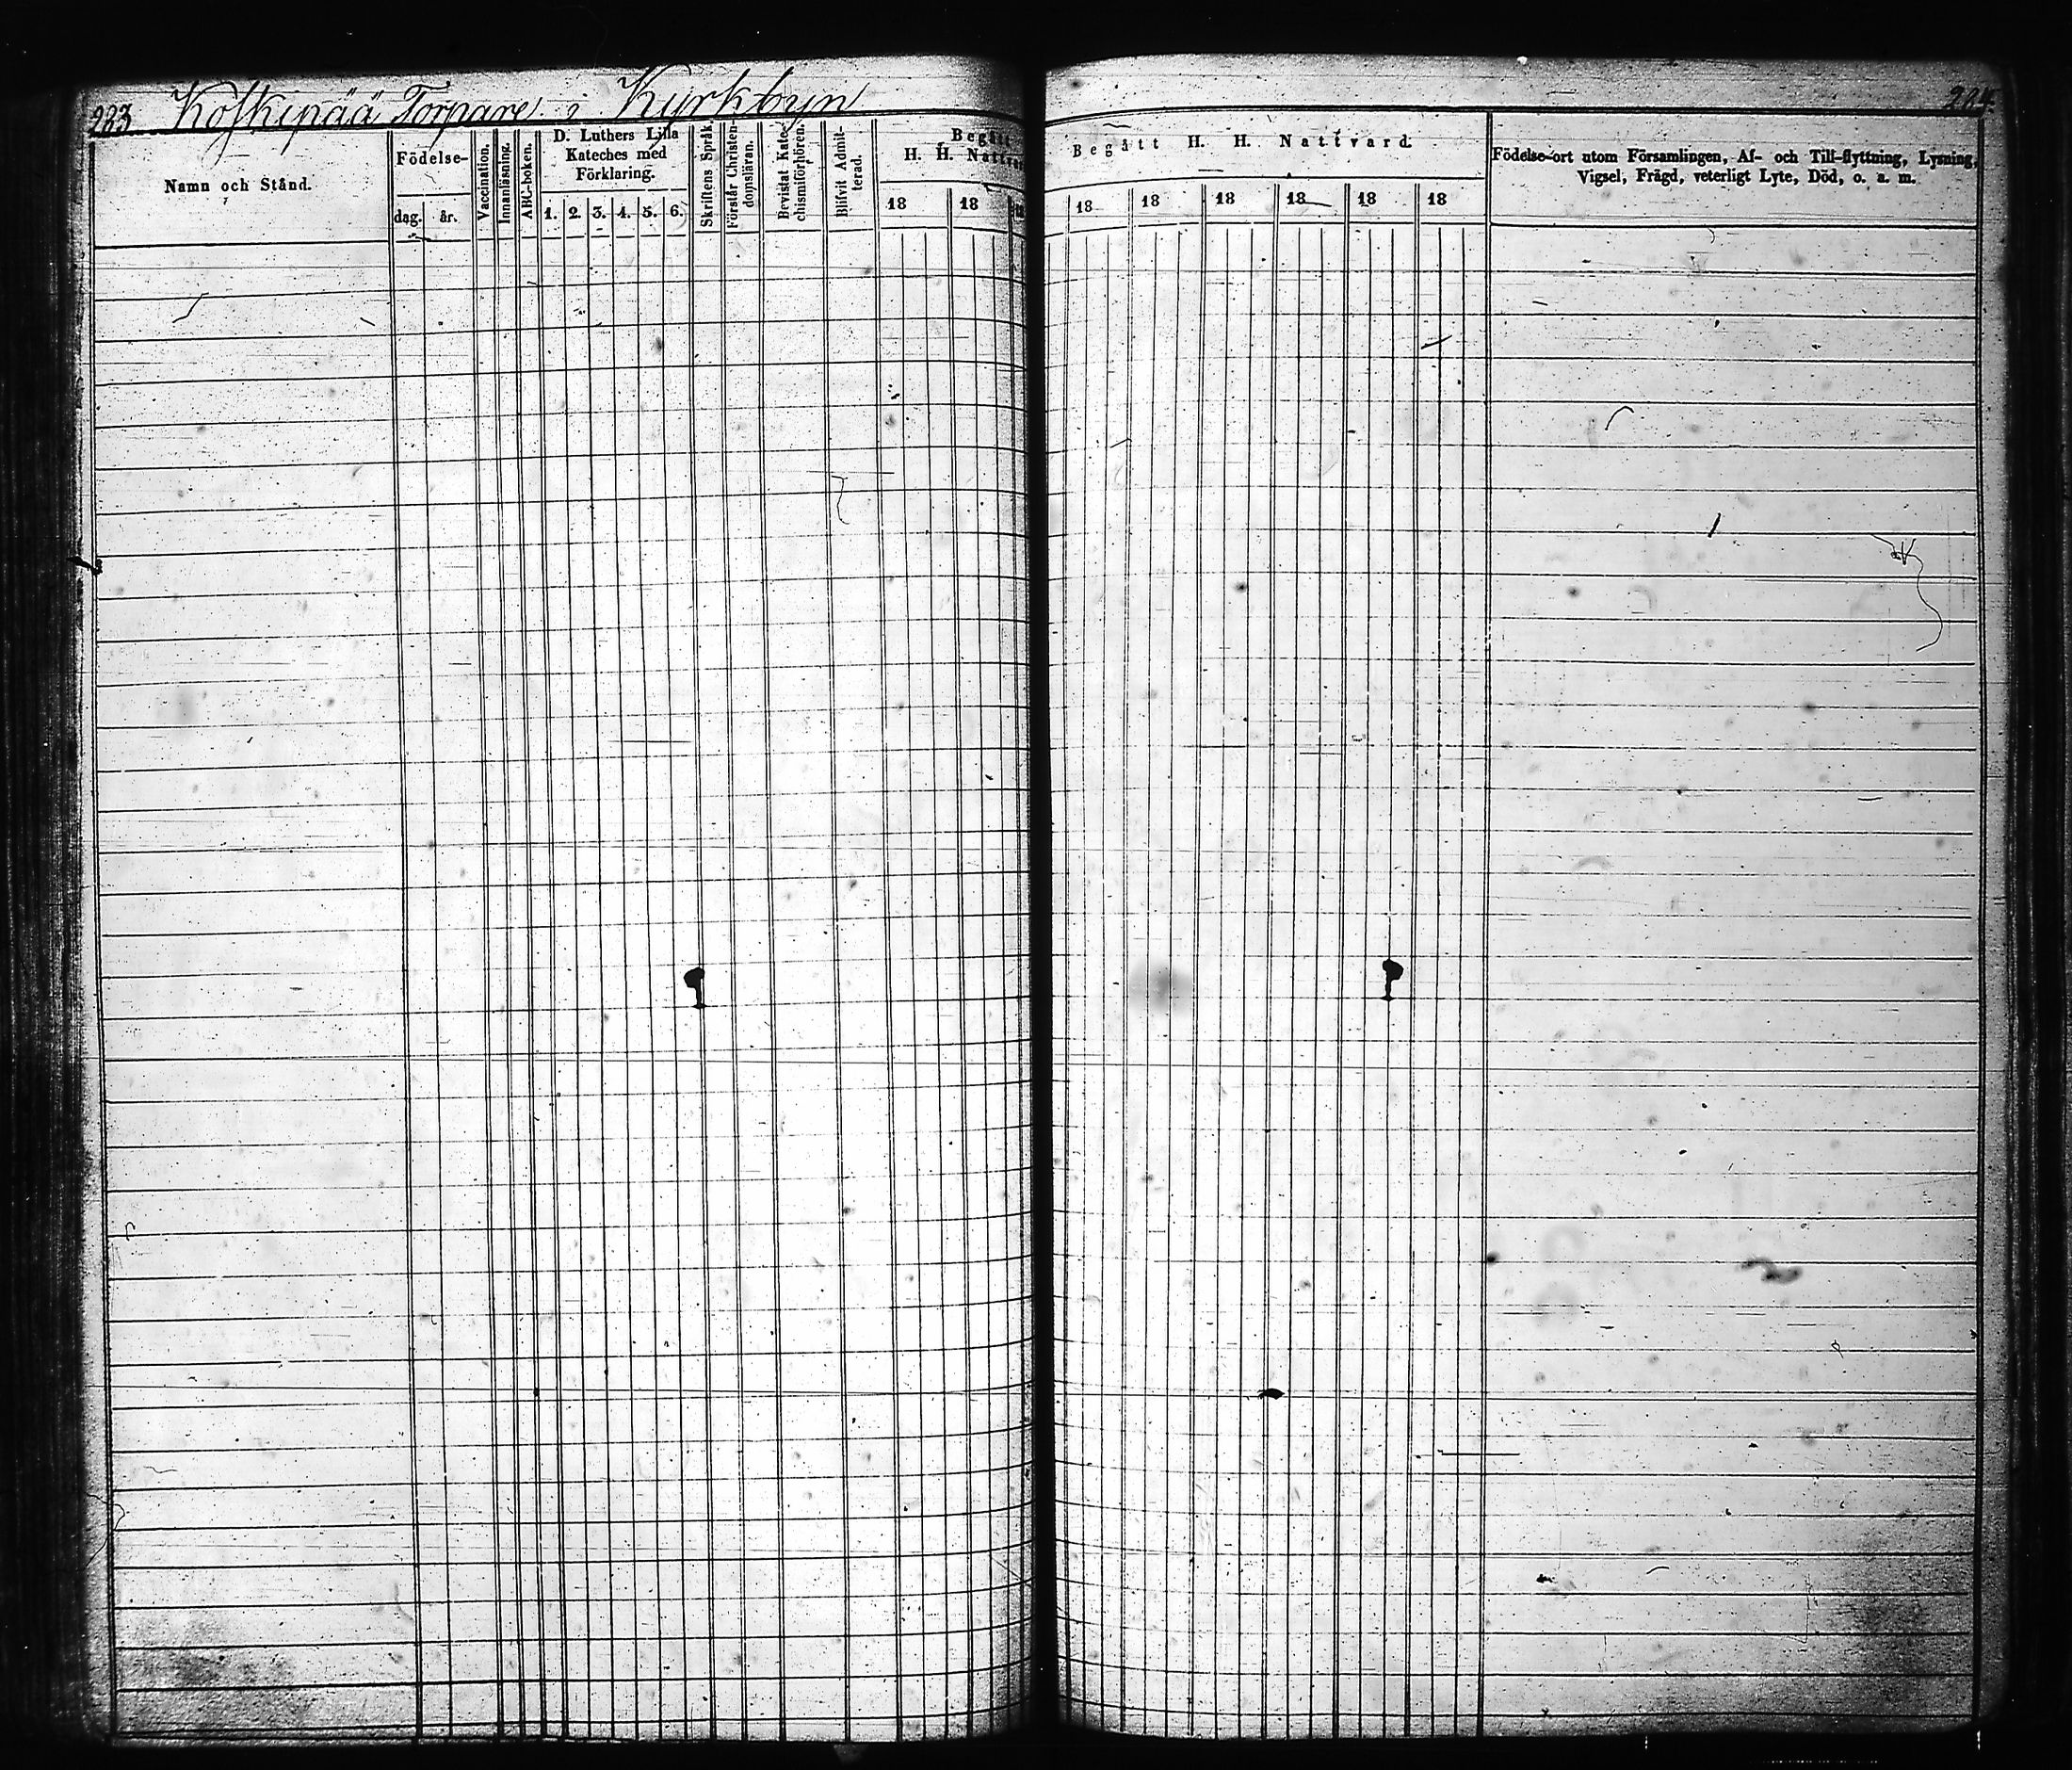 283 Koskipää Torpare i Kyrkbyn
Namn och Stånd.
Födelse-
dag. år.
Vaccination.
Innanläsning.
ABC-boken.
D. Luthers Lilla
Kateches med
Förklaring.
1. 2. 3. 4. 5. 6.
Skriftens Språk.
Förstår Christen-
domsläran.
Bevistat Kate-
chismiförhören.
Blifvit Admit-
terad.
Begått
H. H. Nattvar
18 18 18
284
Begått H. H. Nattvard.
18 18 18 18 18 18
Födelse-ort utom Församlingen, Af- och Till-flyttning, Lysning,
Vigsel, Frägd, veterligt Lyte, Död, o. a. m.